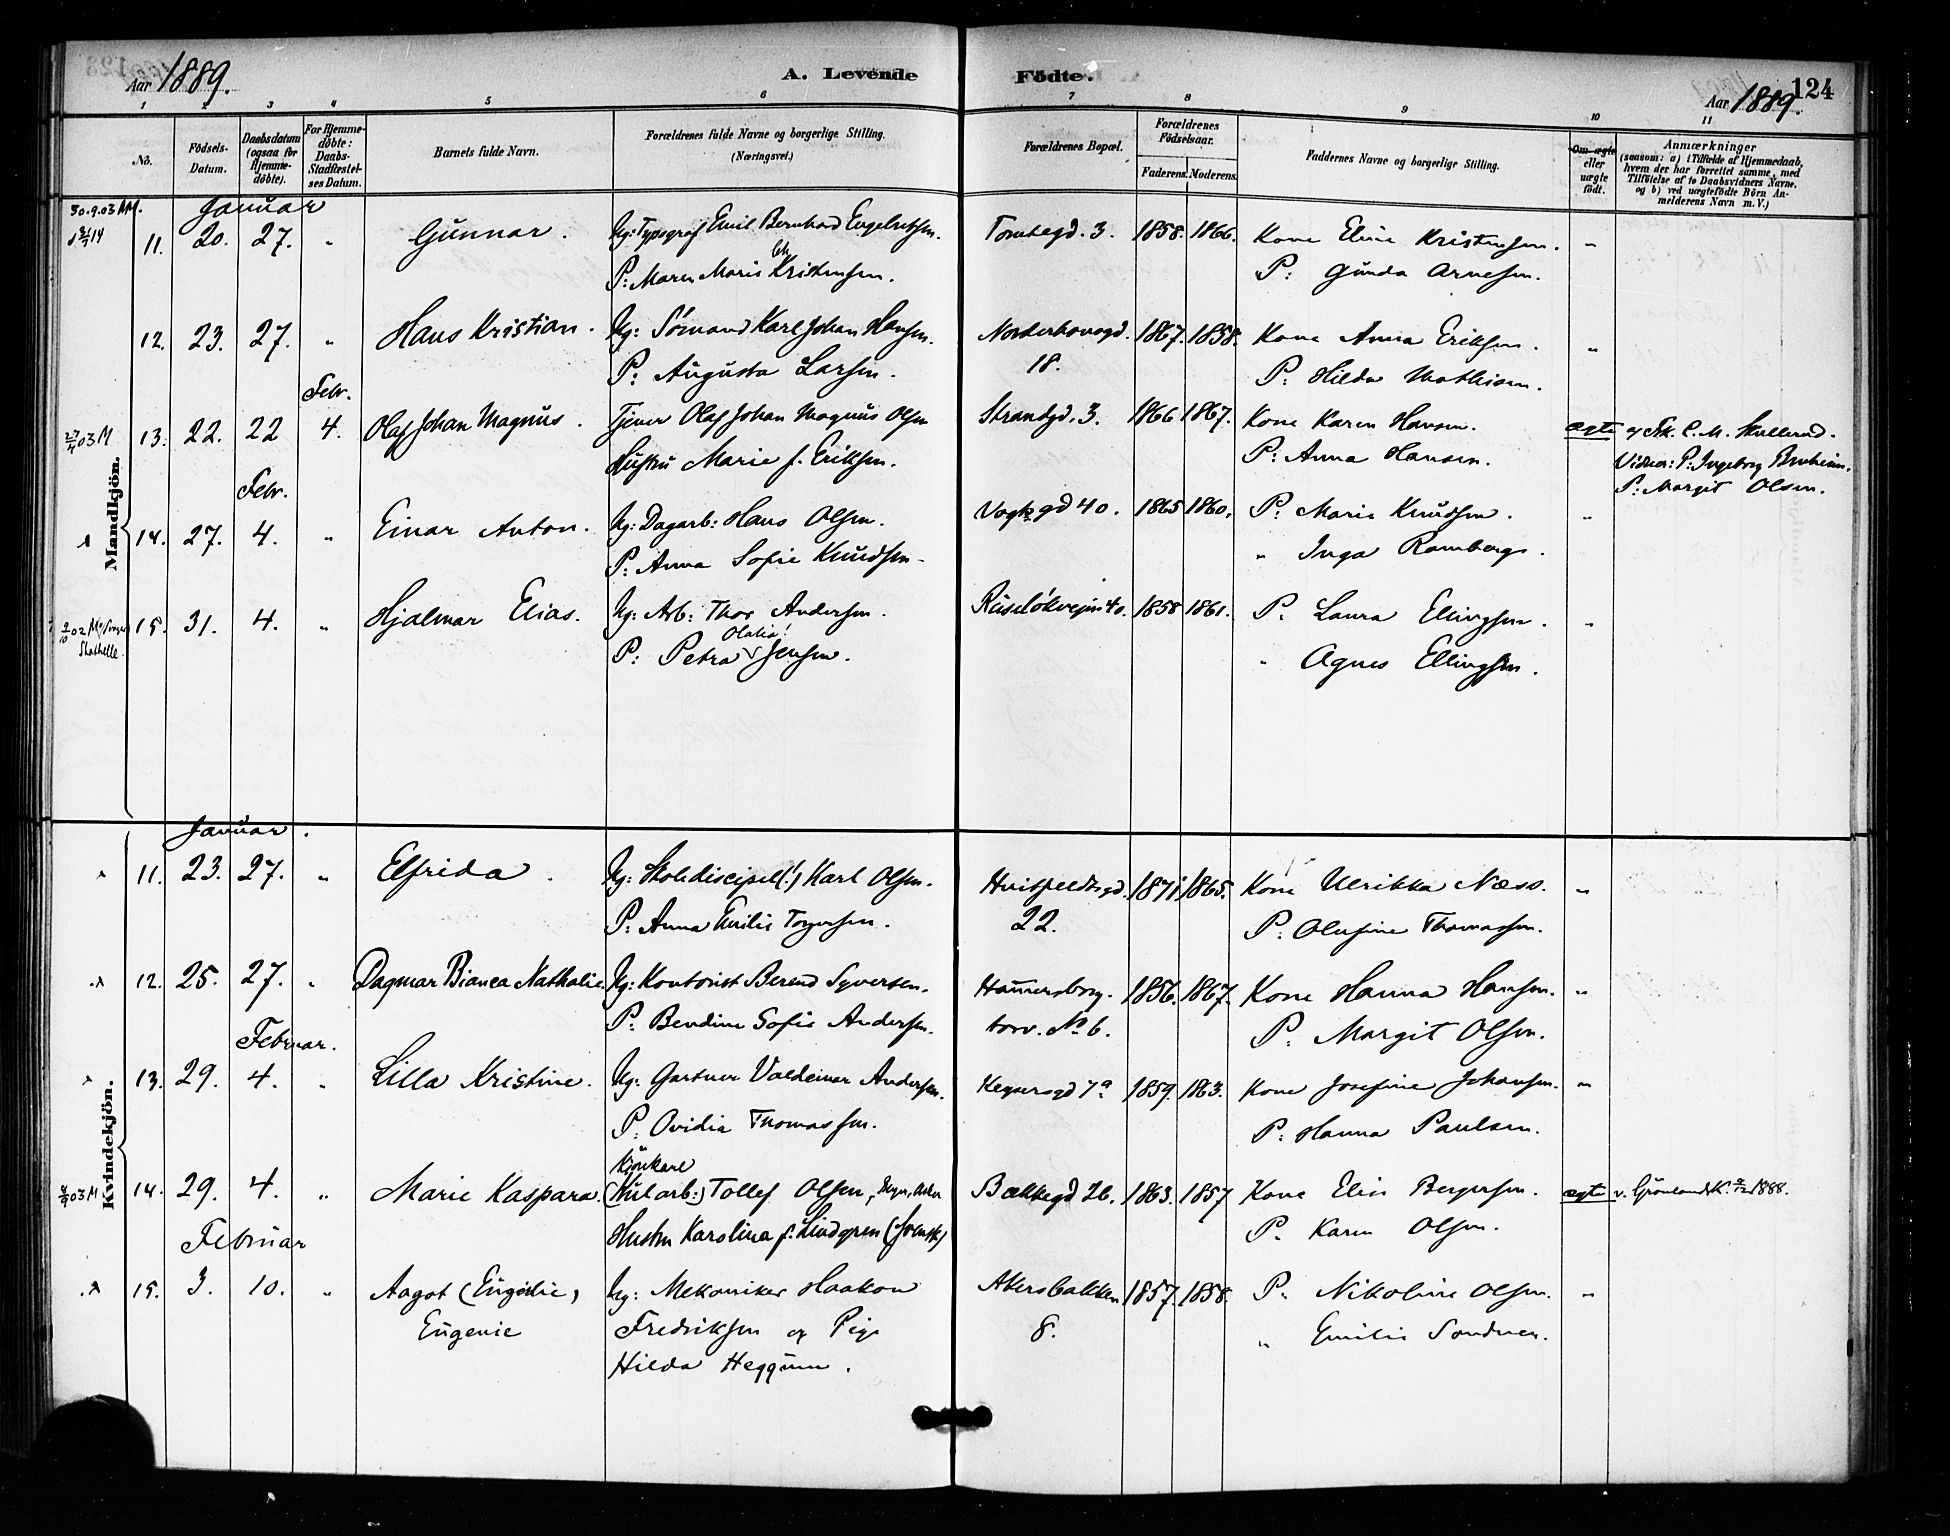 Aar 1889. A. Levende Födte. Aar 1889. 124
1 2 3 4 5 6 7 8 9 10 11
No. Födsels-Datum. Daabsdatum (ogsaa for Hjemme-döbte). For Hjemme-döbte: Daabs-Stadfæstel-ses Datum. Barnets fulde Navn. Forældrenes fulde Navne og borgerlige Stilling. (Næringsvei.) Forældrenes Bopæl. Forældrenes Födselsaar. Faderens. Moderens. Faddernes Navne og borgerlige Stilling. Om ægte eller uægte født. Anmærkninger (saasom: a) i Tilfælde af Hjemmedaab, hvem der har forrettet samme, med Tilføielse af to Daabsvidners Navne, og b) ved uægtefødte Börn An-melderens Navn m. V.)
Mandkjön.
30.9.03 M. Januar
11. 20. 27. " Gunnar. Ug: Typograf Emil Bernhard Engelretsen. Tomtegd. 3. 1858. 1866. Kone Eline Kristensen. "
P: Maren Marie Kristensen. P: Gunda Arnesen.
12. 23. 27. " Hans Kristian. Ug: Sömand Karl Johan Hansen. Norderhovsgd. 1867. 1858. Kone Anna Eriksen. "
P: Augusta Larsen. 18. P: Hilda Mathisen.
Febr.
13. 22. 22 4. Olaf Johan Magnus. Tjener Olaf Johan Magnus Olsen Strandgd. 3. 1866 1867. Kone Karen Hansen. ægte af Frk. C. M. Skullerud.
Hustru Marie f. Eriksen. P: Anna Hansen. Vidner: P: Ingeborg Bruheim.
Febr. P: Margit Olsen.
14. 27. 4. " Einar Anton. Ug: Dagarb: Hans Olsen. Vogtsgd 40. 1865 1860. P: Marie Knudsen. "
P: Anna Sofie Knudsen " Inga Ramberg.
15. 31. 4. " Hjalmar Elias. Ug: Arb: Thor Andersen. Ruselökveien 40. 1858 1861. P: Laura Ellingsen. "
Skathelle. P: Petra Olalia! Jensen. " Agnes Ellingsen.
Kvindekjön.
Januar.
11. 23. 27. " Elfrida. Ug: Skolediscipel(!) Karl Olsen. Hvitfeldtsgd. 1871 1865. Kone Ulrikka Næss. "
P: Anna Emilie Torgersen. 22. P: Olufine Thomassen.
12. 25. 27. " Dagmar Bianca Nathalie. Ug: Kontorist Berend Syversen. Hammersborg. 1856. 1867. Kone Hanna Hansen. "
P: Bendine Sofie Andersen. torv. No 6. P. Margit Olsen.
Februar.
13. 29. 4. " Lilla Kristine. Ug: Gartner Valdemar Andersen. Keysersgd 7a 1859. 1863. Kone Josefine Johansen. "
P. Ovidia Thomassen. P: Hanna Paulsen.
14. 29. 4. " Marie Kaspara. (Kularb:) Tollef Olsen, Bækkegd 26. 1863. 1857 Kone Elise Bergersen. ægte v. Grønlands K. 1888.
Hustru Karolina f. Lindgren (Svensk) P. Karen Olsen.
Februar
15. 3. 10. " Aagot (Eugenie) Ug: Mekaniker Haakon Akersbakken 1857. 1858. P. Nikoline Olsen. "
Eugenie Fredriksen og Pige 8. " Emilie Sondresen.
Hilda Heggum.